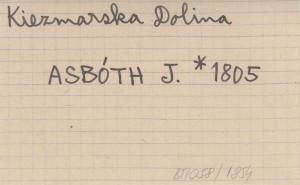 Kiezmarska Dolina
ASBÓTH J. *1805